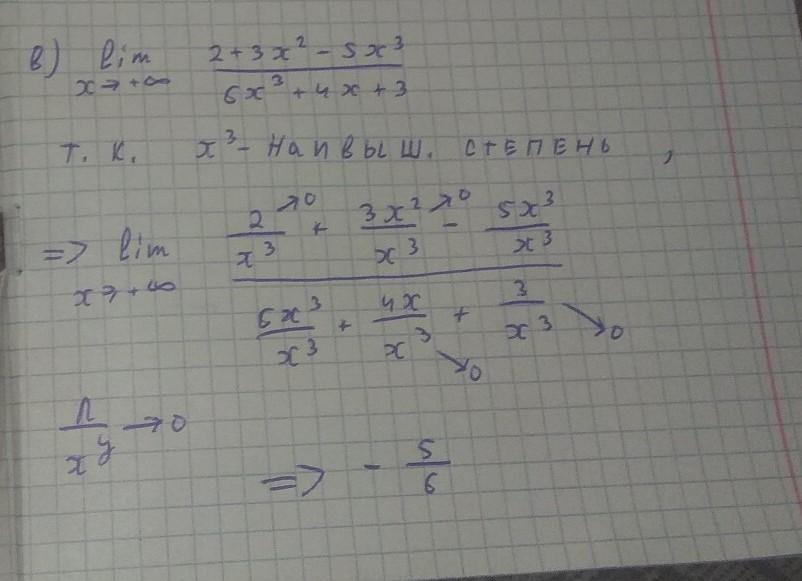 в) lim x→+∞ (2+3x²-5x³)/(6x³+4x+3)
т. к. x³- наивыш. степень,
=> lim x→+∞ (2/x³ →0 + 3x²/x³ →0 - 5x³/x³)/(6x³/x³ + 4x/x³ →0 + 3/x³ →0)
n/x^y →0
=> - 5/6